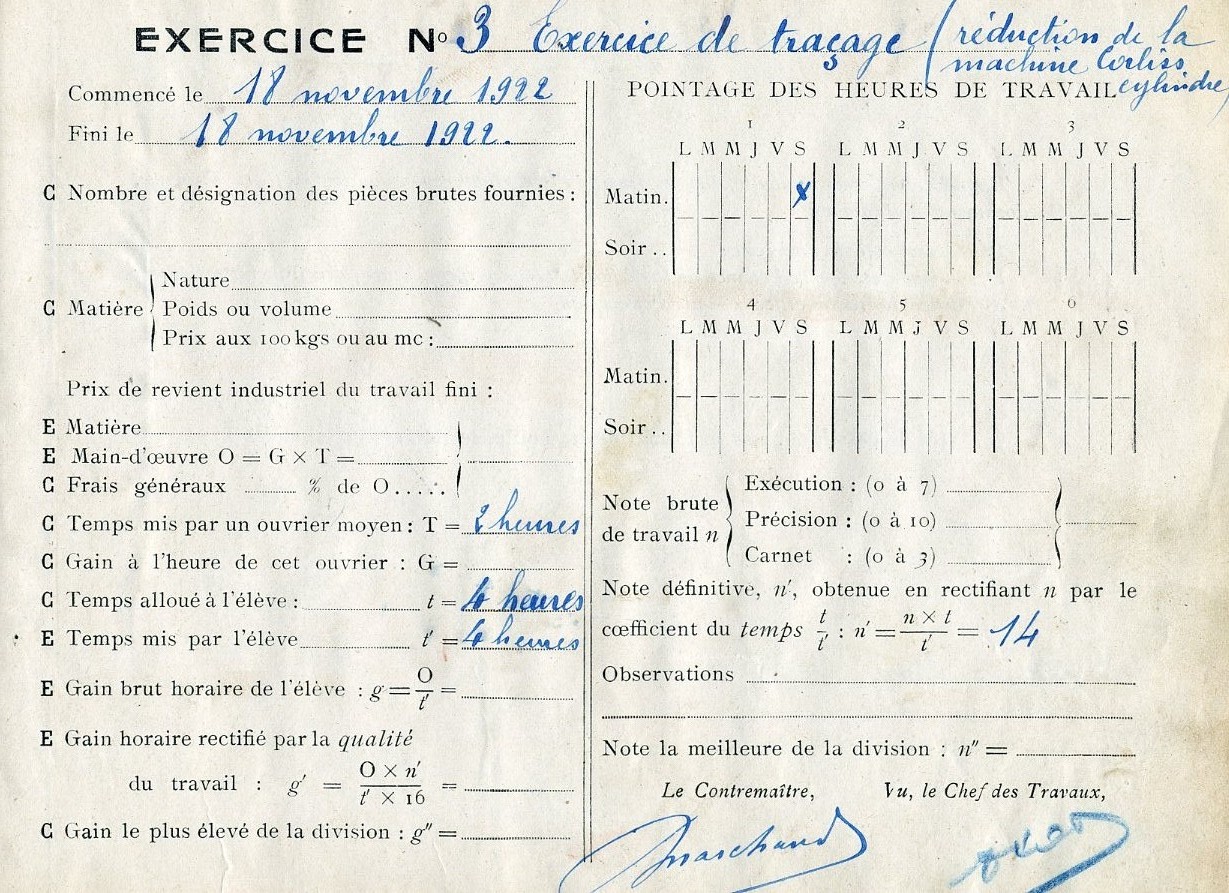 EXERCICE No 3 Exercice de traçage (réduction de la
machine Corliss
cylindre)
Commencé le 18 novembre 1922
Fini le 18 novembre 1922.
C Nombre et désignation des pièces brutes fournies :
C Matière
Nature
Poids ou volume
Prix aux 100 kgs ou au mc :
Prix de revient industriel du travail fini :
E Matière
E Main-d'œuvre O = G × T =
C Frais généraux % de O.....
C Temps mis par un ouvrier moyen : T = 2 heures
C Gain à l'heure de cet ouvrier : G =
C Temps alloué à l'élève : t = 4 heures
E Temps mis par l'élève t' = 4 heures
E Gain brut horaire de l'élève : g = O/t' =
E Gain horaire rectifié par la qualité
du travail : g' = O × n' / t' × 16 =
C Gain le plus élevé de la division : g" =
POINTAGE DES HEURES DE TRAVAIL
1 2 3
L M M J V S L M M J V S L M M J V S
Matin. x
Soir ..
4 5 6
L M M J V S L M M J V S L M M J V S
Matin.
Soir ..
Note brute
de travail n
Exécution : (0 à 7)
Précision : (0 à 10)
Carnet : (0 à 3)
Note définitive, n', obtenue en rectifiant n par le
cœfficient du temps t/t' : n' = n × t / t' = 14
Observations
Note la meilleure de la division : n" =
Le Contremaître, Vu, le Chef des Travaux,
Marchand